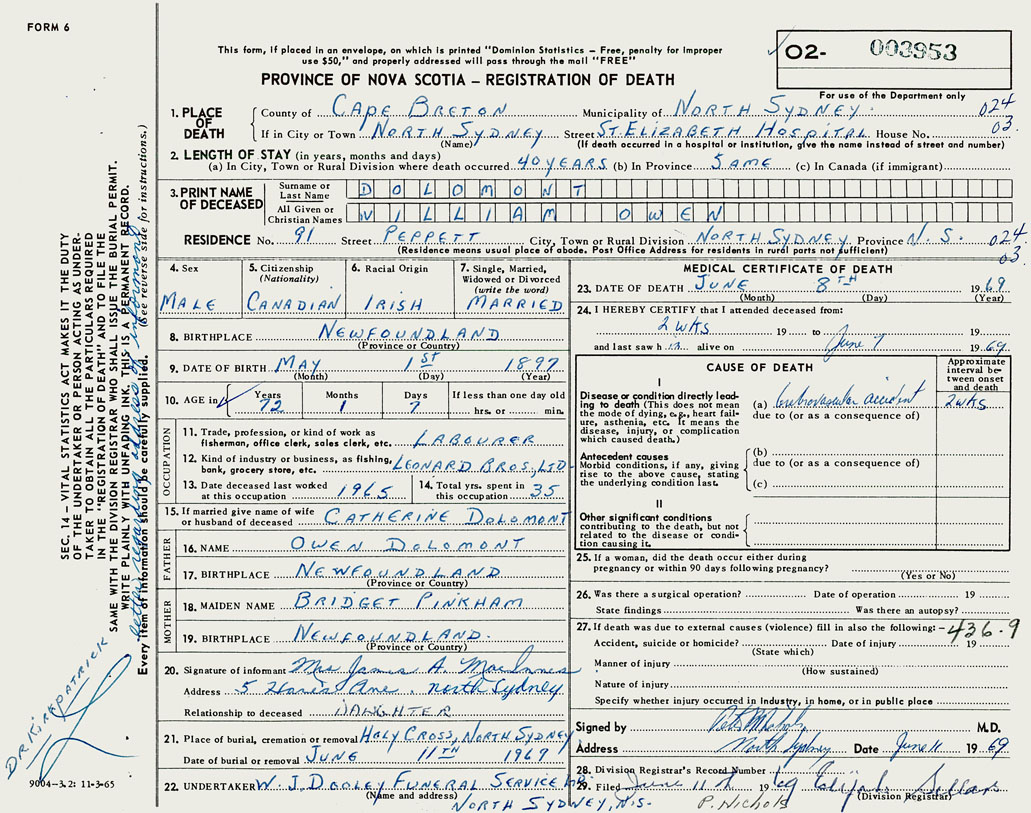 FORM 6
This form, if placed in an envelope, on which is printed "Dominion Statistics – Free, penalty for improper
use $50," and properly addressed will pass through the mail "FREE"
PROVINCE OF NOVA SCOTIA – REGISTRATION OF DEATH
02- 003953
For use of the Department only
1. PLACE OF DEATH
County of CAPE BRETON Municipality of NORTH SYDNEY. 024
If in City or Town NORTH SYDNEY Street ST. ELIZABETH HOSPITAL House No. 03.
(Name) (If death occurred in a hospital or institution, give the name instead of street and number)
2. LENGTH OF STAY (in years, months and days)
(a) In City, Town or Rural Division where death occurred 40 YEARS (b) In Province SAME (c) In Canada (if immigrant)
3. PRINT NAME OF DECEASED
Surname or Last Name DOLOMONT
All Given or Christian Names WILLIAM OWEN
RESIDENCE No. 91 Street PEPPETT City, Town or Rural Division NORTH SYDNEY, Province N. S. 024
(Residence means usual place of abode. Post Office Address for residents in rural parts not sufficient) 03.
4. Sex
MALE
5. Citizenship
(Nationality)
CANADIAN
6. Racial Origin
IRISH
7. Single, Married,
Widowed or Divorced
(write the word)
MARRIED
8. BIRTHPLACE NEWFOUNDLAND
(Province or Country)
9. DATE OF BIRTH MAY 1ST 1897
(Month) (Day) (Year)
10. AGE in Years Months Days If less than one day old
72 1 7 hrs. or min.
OCCUPATION
11. Trade, profession, or kind of work as
fisherman, office clerk, sales clerk, etc. LABOURER
12. Kind of industry or business, as fishing,
bank, grocery store, etc. LEONARD BROS., LTD.
13. Date deceased last worked
at this occupation 1965
14. Total yrs. spent in
this occupation 35
15. If married give name of wife
or husband of deceased CATHERINE DOLOMONT
FATHER
16. NAME OWEN DOLOMONT
17. BIRTHPLACE NEWFOUNDLAND
(Province or Country)
MOTHER
18. MAIDEN NAME BRIDGET PINKHAM
19. BIRTHPLACE NEWFOUNDLAND.
(Province or Country)
20. Signature of informant Mrs James A. MacInnes
Address 5 Ave. North Sydney
Relationship to deceased DAUGHTER
21. Place of burial, cremation or removal HOLY CROSS, NORTH SYDNEY
Date of burial or removal JUNE 11TH 1969
22. UNDERTAKER W. J. DOOLEY FUNERAL SERVICE LTD.
(Name and address) NORTH SYDNEY, N.S.
MEDICAL CERTIFICATE OF DEATH
23. DATE OF DEATH JUNE 8TH 1969
(Month) (Day) (Year)
24. I HEREBY CERTIFY that I attended deceased from:
2 WKS 19 to June 7 19
and last saw h im alive on 1969
CAUSE OF DEATH
Approximate interval between onset and death
I
Disease or condition directly leading to death (This does not mean the mode of dying, e.g., heart failure, asthenia, etc. It means the disease, injury, or complication which caused death.)
(a) Cerebrovascular accident 2 WKS
due to (or as a consequence of)
Antecedent causes
Morbid conditions, if any, giving rise to the above cause, stating the underlying condition last.
(b)
due to (or as a consequence of)
(c)
II
Other significant conditions
contributing to the death, but not related to the disease or condition causing it.
25. If a woman, did the death occur either during
pregnancy or within 90 days following pregnancy?
(Yes or No)
26. Was there a surgical operation? Date of operation 19
State findings Was there an autopsy?
27. If death was due to external causes (violence) fill in also the following: – 436.9
Accident, suicide or homicide? Date of injury 19
(State which)
Manner of injury
(How sustained)
Nature of injury
Specify whether injury occurred in Industry, in home, or in public place
Signed by M.D.
Address North Sydney Date June 11 1969
28. Division Registrar's Record Number
29. Filed June 11th 1969 Sellars
P. Nichols (Division Registrar)
SEC. 14 – VITAL STATISTICS ACT MAKES IT THE DUTY
OF THE UNDERTAKER OR PERSON ACTING AS UNDER-
TAKER TO OBTAIN ALL THE PARTICULARS REQUIRED
IN THE "REGISTRATION OF DEATH" AND TO FILE THE
SAME WITH THE DIVISION REGISTRAR WHO SHALL ISSUE THE BURIAL PERMIT.
WRITE PLAINLY WITH UNFADING INK. THIS IS A PERMANENT RECORD.
Every item of information should be carefully supplied. (See reverse side for instructions.)
letter regarding address of informant
DR KIRKPATRICK
9004-3.2: 11-3-65